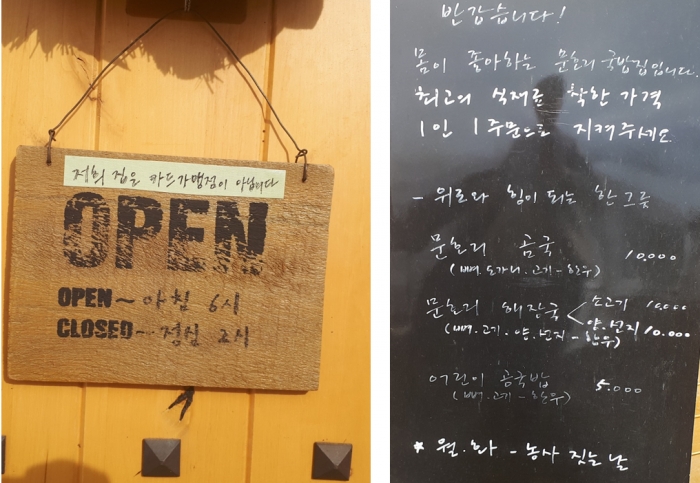 저희 집은 카드가맹점이 아닙니다
OPEN
OPEN~ 아침 6시
CLOSED~ 점심 2시
반갑습니다!
몸이 좋아하는 문호리 국밥집입니다.
최고의 식재료 착한 가격
1인 1주문으로 지켜주세요
- 위로와 힘이 되는 한그릇
문호리 곰국 10.000
(뼈.도가니.고기-한우)
문호리 해장국 < 소고기 10.000
양.선지 10.000
(뼈.고기.양.선지-한우)
어린이 곰국밥 5.000
(뼈.고기-한우)
* 월.화 - 농사 짓는 날